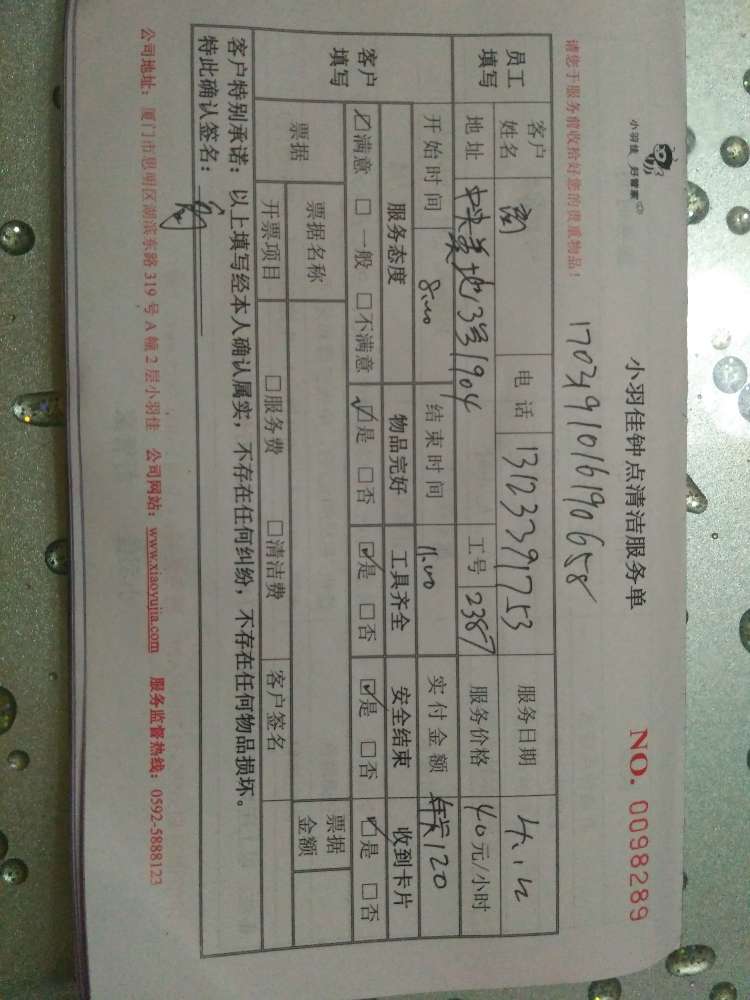 小羽佳 好管家
小羽佳钟点清洁服务单
NO. 0098289
请您于服务前收拾好您的贵重物品!
员工填写
客户姓名 电话 13123391753 服务日期
地址 13号1904 工号 2387 服务价格 40元/小时
开始时间 8:00 结束时间 11:00 实付金额 120
客户填写
服务态度 物品完好 工具齐全 安全结束 收到卡片
☑满意 □一般 □不满意 ☑是 □否 ☑是 □否 ☑是 □否 ☑是 □否
票据 票据名称 票据金额
开票项目 □服务费 □清洁费 客户签名
客户特别承诺:以上填写经本人确认属实,不存在任何纠纷,不存在任何物品损坏。
特此确认签名:
公司地址:厦门市思明区湖滨东路 319 号 A 幢 2 层小羽佳 公司网站:www.xiaoyujia.com 服务监督热线:0592-5888123